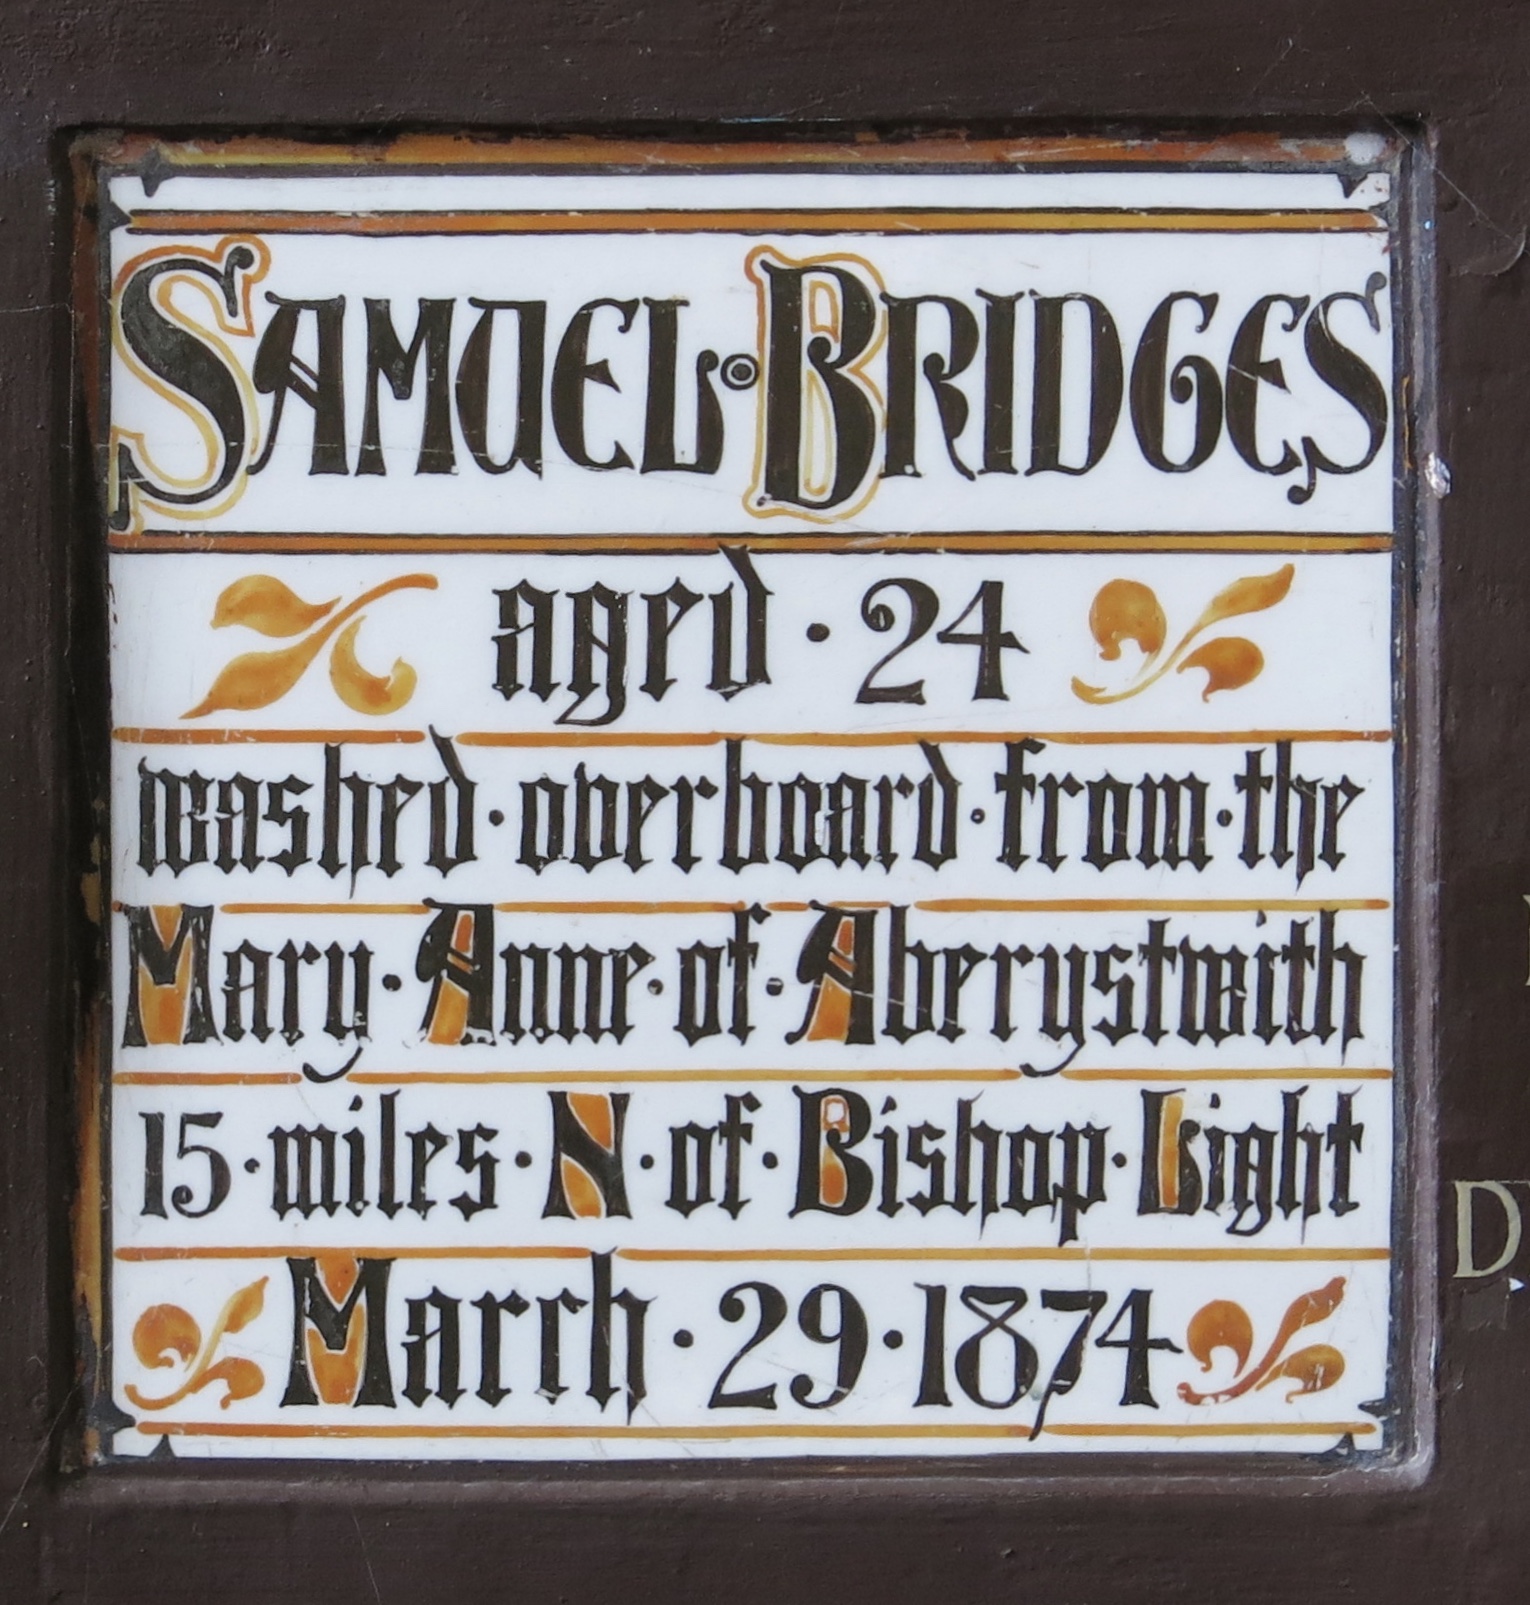 SAMUEL·BRIDGES
aged · 24
washed·overboard·from·the
Mary·Anne·of·Aberystwith
15·miles·N·of·Bishop·Light
March·29·1874
D